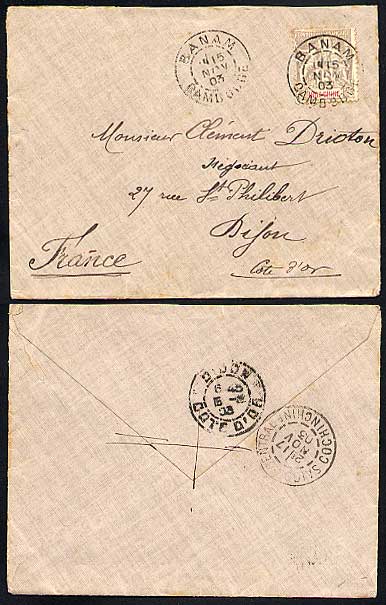 BANAM
15
NOV
03
CAMBODGE
BANAM
15
NOV
03
CAMBODGE
Monsieur Clément Drioton
Négociant
27 rue St Philibert
Dijon
France
Côte d'Or
DIJON
03
COTE D'OR
CENTRAL COCHINCHINE
17
NOV
03